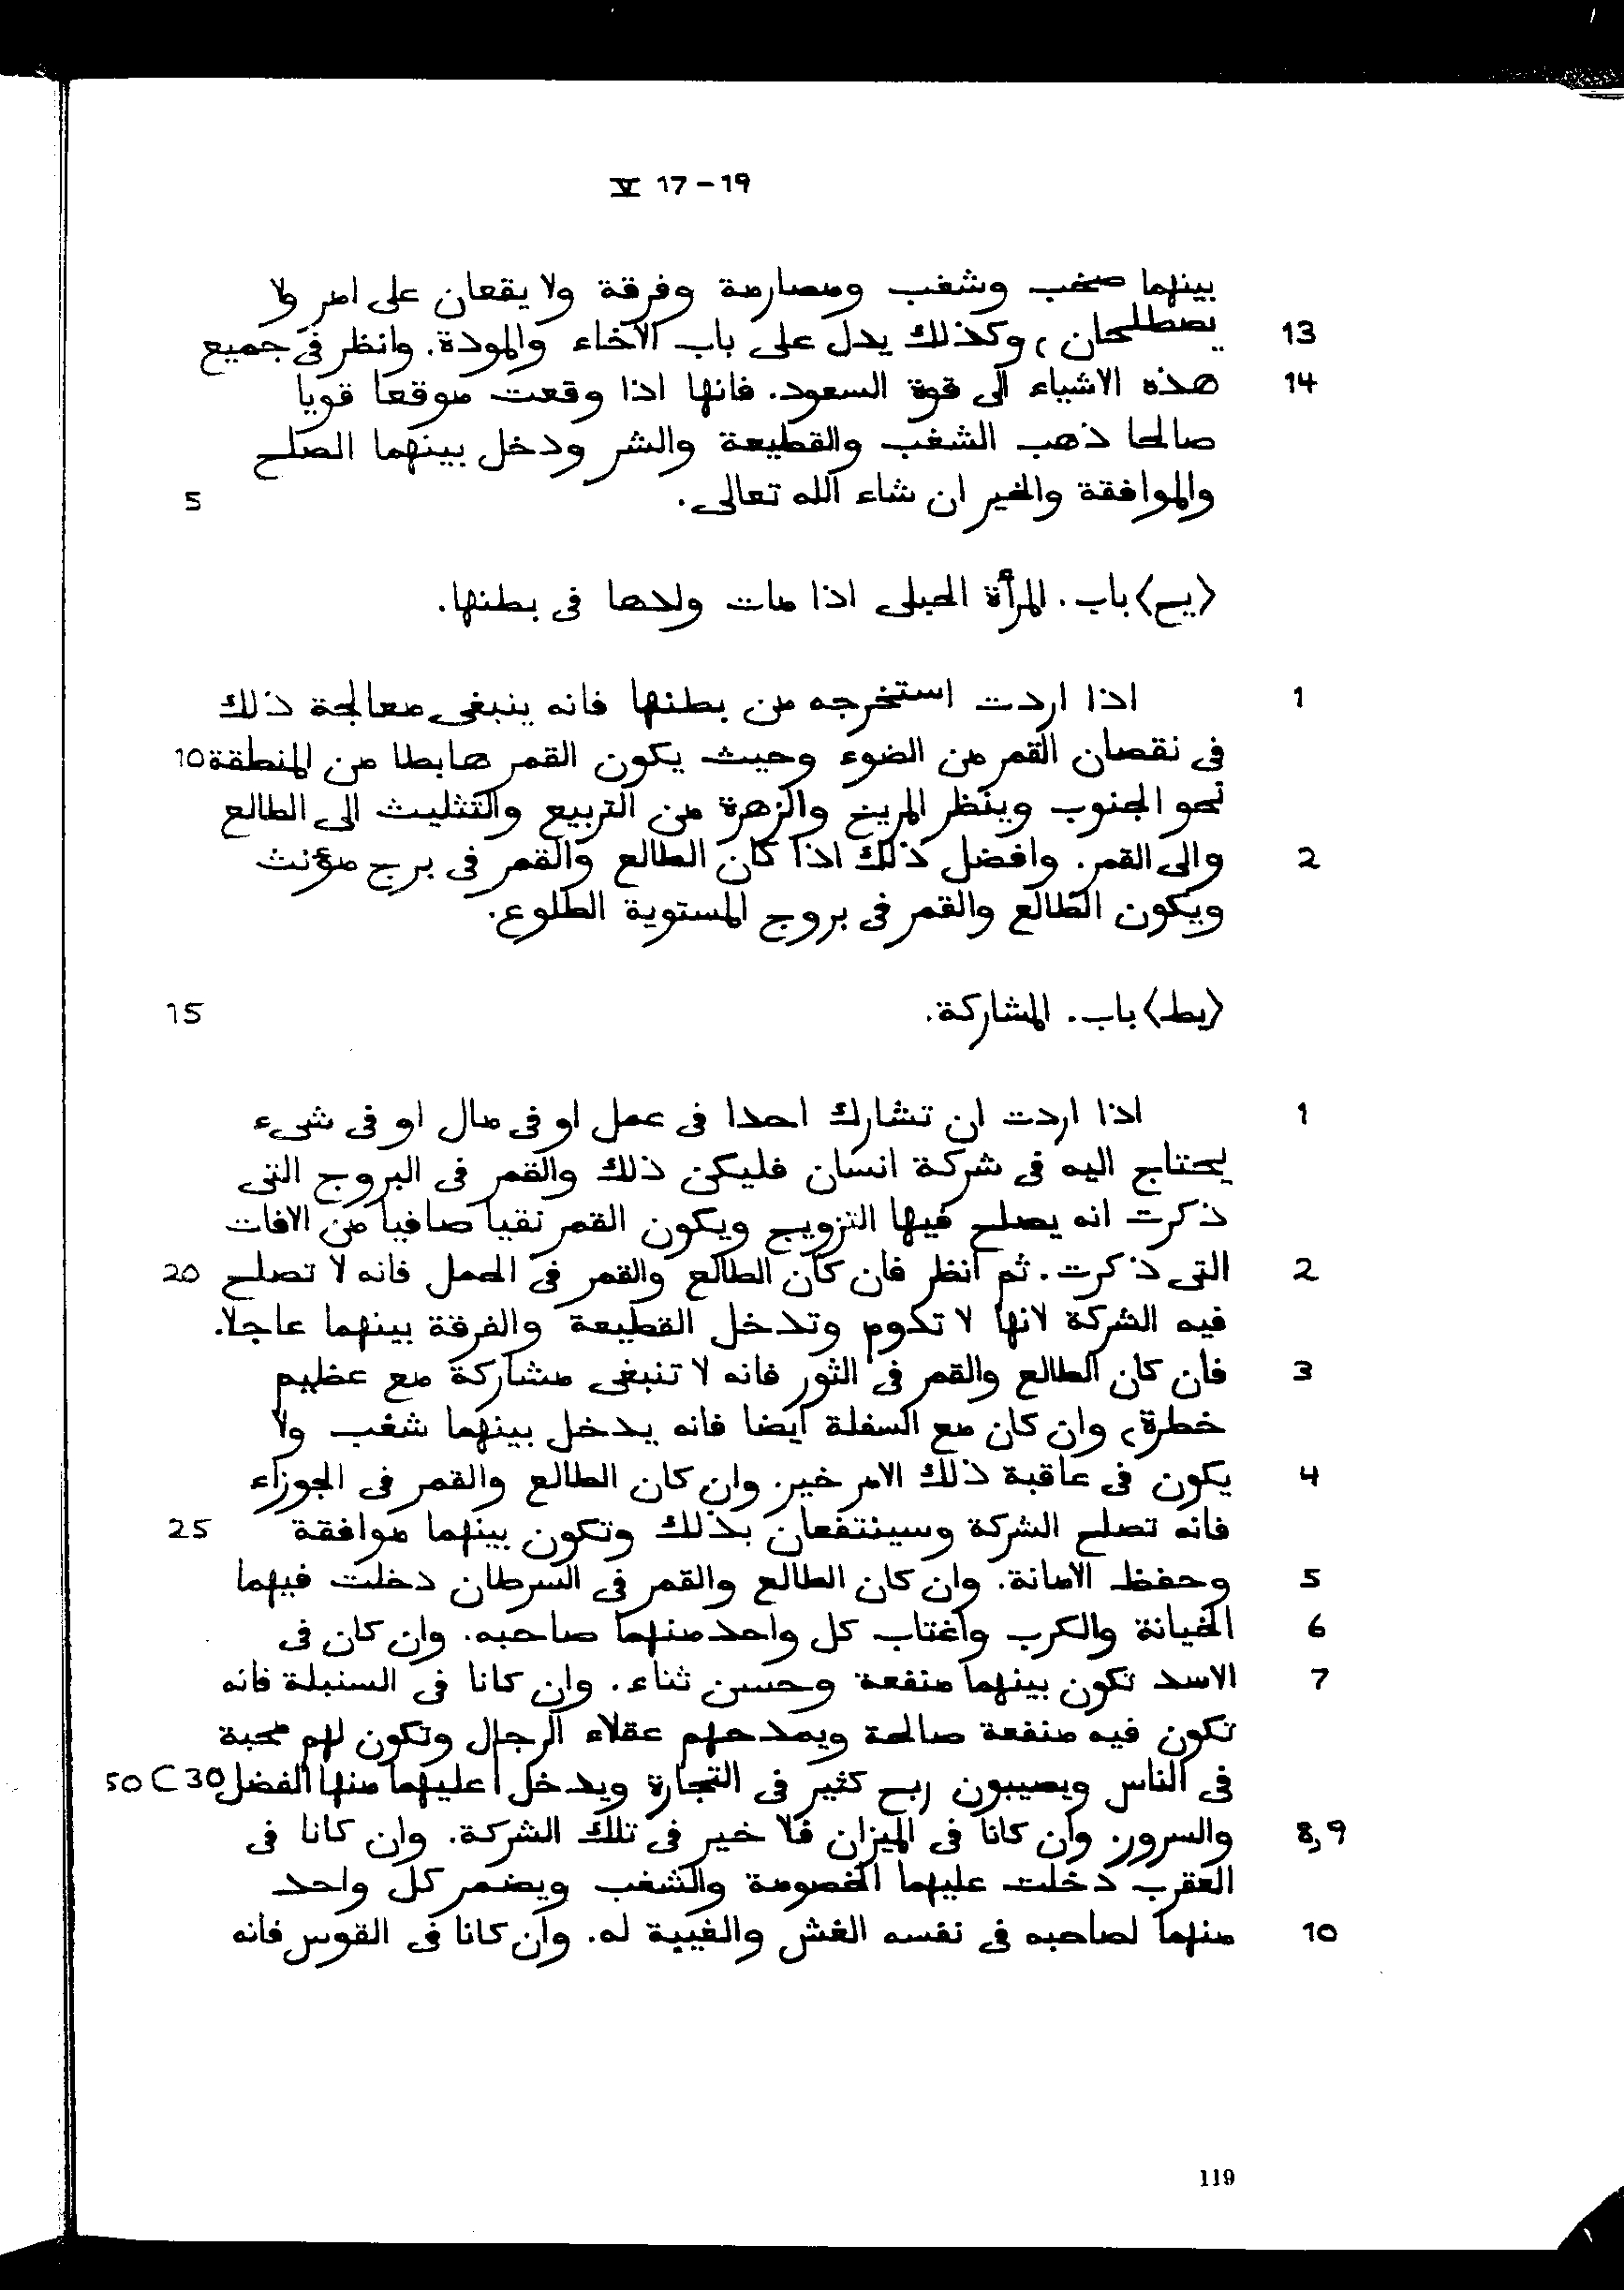 V 17-19
بينهما صخب وشغب ومصارمة وفرقة ولا يقعان على امر ولا
13 يصطلحان، وكذلك يدل على باب الاخاء والمودة. وانظر فى جميع
14 هذه الاشياء الى قوة السعود. فانها اذا وقعت موقعا قويا
صالحا ذهب الشغب والقطيعة والشر ودخل بينهما الصلح
والموافقة والخير ان شاء الله تعالى. 5
〈يح〉 باب. المرأة الحبلى اذا مات ولدها فى بطنها.
1 اذا اردت استخرجه من بطنها فانه ينبغى معالجة ذلك
فى نقصان القمر من الضوء وحيث يكون القمر هابطا من المنطقة 10
نحو الجنوب وينظر المريخ والزهرة من التربيع والتثليث الى الطالع
2 والى القمر. وافضل ذلك اذا كان الطالع والقمر فى برج مؤنث
ويكون الطالع والقمر فى بروج المستوية الطلوع.
〈يط〉 باب. المشاركة. 15
1 اذا اردت ان تشارك احدا فى عمل او فى مال او فى شىء
يحتاج اليه فى شركة انسان فليكن ذلك والقمر فى البروج التى
ذكرت انه يصلح فيها التزويج ويكون القمر نقيا صافيا من الافات
2 التى ذكرت. ثم انظر فان كان الطالع والقمر فى الحمل فانه لا تصلح 20
فيه الشركة لانها لا تدوم وتدخل القطيعة والفرقة بينهما عاجلا.
3 فان كان الطالع والقمر فى الثور فانه لا تنبغى مشاركة مع عظيم
خطرة، وان كان مع السفلة ايضا فانه يدخل بينهما شغب ولا
4 يكون فى عاقبة ذلك الامر خير. وان كان الطالع والقمر فى الجوزاء
فانه تصلح الشركة وسينتفعان بذلك وتكون بينهما موافقة 25
5 وحفظ الامانة. وان كان الطالع والقمر فى السرطان دخلت فيهما
6 الخيانة والكرب واغتاب كل واحد منهما صاحبه. وان كان فى
7 الاسد تكون بينهما منفعة وحسن ثناء. وان كانا فى السنبلة فانه
تكون فيه منفعة صالحة ويمدحهم عقلاء الرجال وتكون لهم محبة
فى الناس ويصيبون ربح كثير فى التجارة ويدخل ا عليهما منها الفضل 30 50 C
8,9 والسرور. وان كانا فى الميزان فلا خير فى تلك الشركة. وان كانا فى
العقرب دخلت عليهما الخصومة والشغب ويضمر كل واحد
10 منهما لصاحبه فى نفسه الغش والغيبة له. وان كانا فى القوس فانه
119